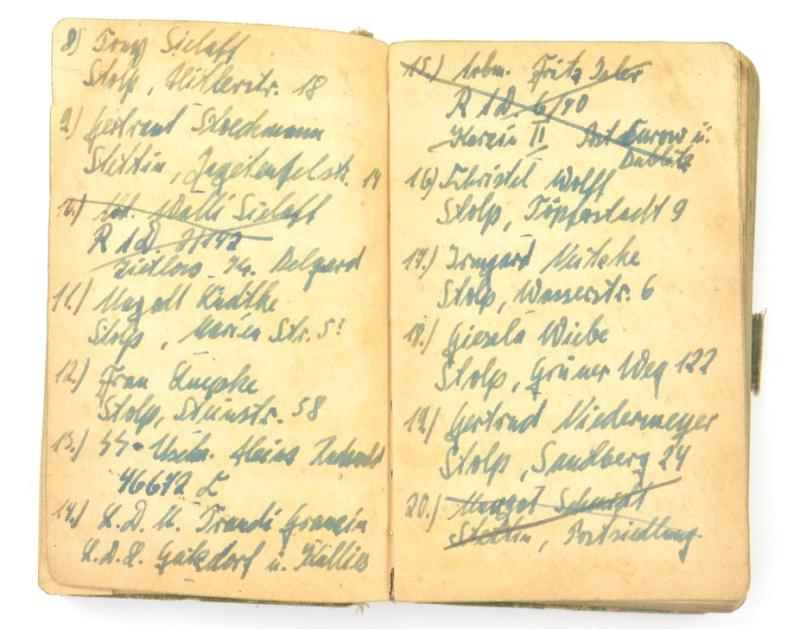 8) Frau Sielaff
Stolp, Hitlerstr. 18
9.) Gertraut Stoedtmann
Stettin, 14
10.) Walli Sielaff
R A D. 7/142
Zietlow Kr. Belgard
11.) Magell Radtke
Stolp, Marien Str. 5?
12.) Frau Kuepke
Stolp, Steinstr. 58
13.) SS-Uscha. Heinz
46672 L
14.) K.D.M. Traudi Granzin
K.D.L. u. Kallies
15.) Arbm. Fritz Isler
R A D. 6/90
Kurzin II Post Gurow ü.
Bublitz
16.) Christel Wolff
Stolp, Töpferstadt 9
17.) Irmgard Neitzke
Stolp, Wasserstr. 6
18.) Giesela Wiebe
Stolp, Grüner Weg 122
19.) Gertrud Niedermeyer
Stolp, Sandberg 24
20.) Margot Schmidt
Stettin, Postsiedlung.